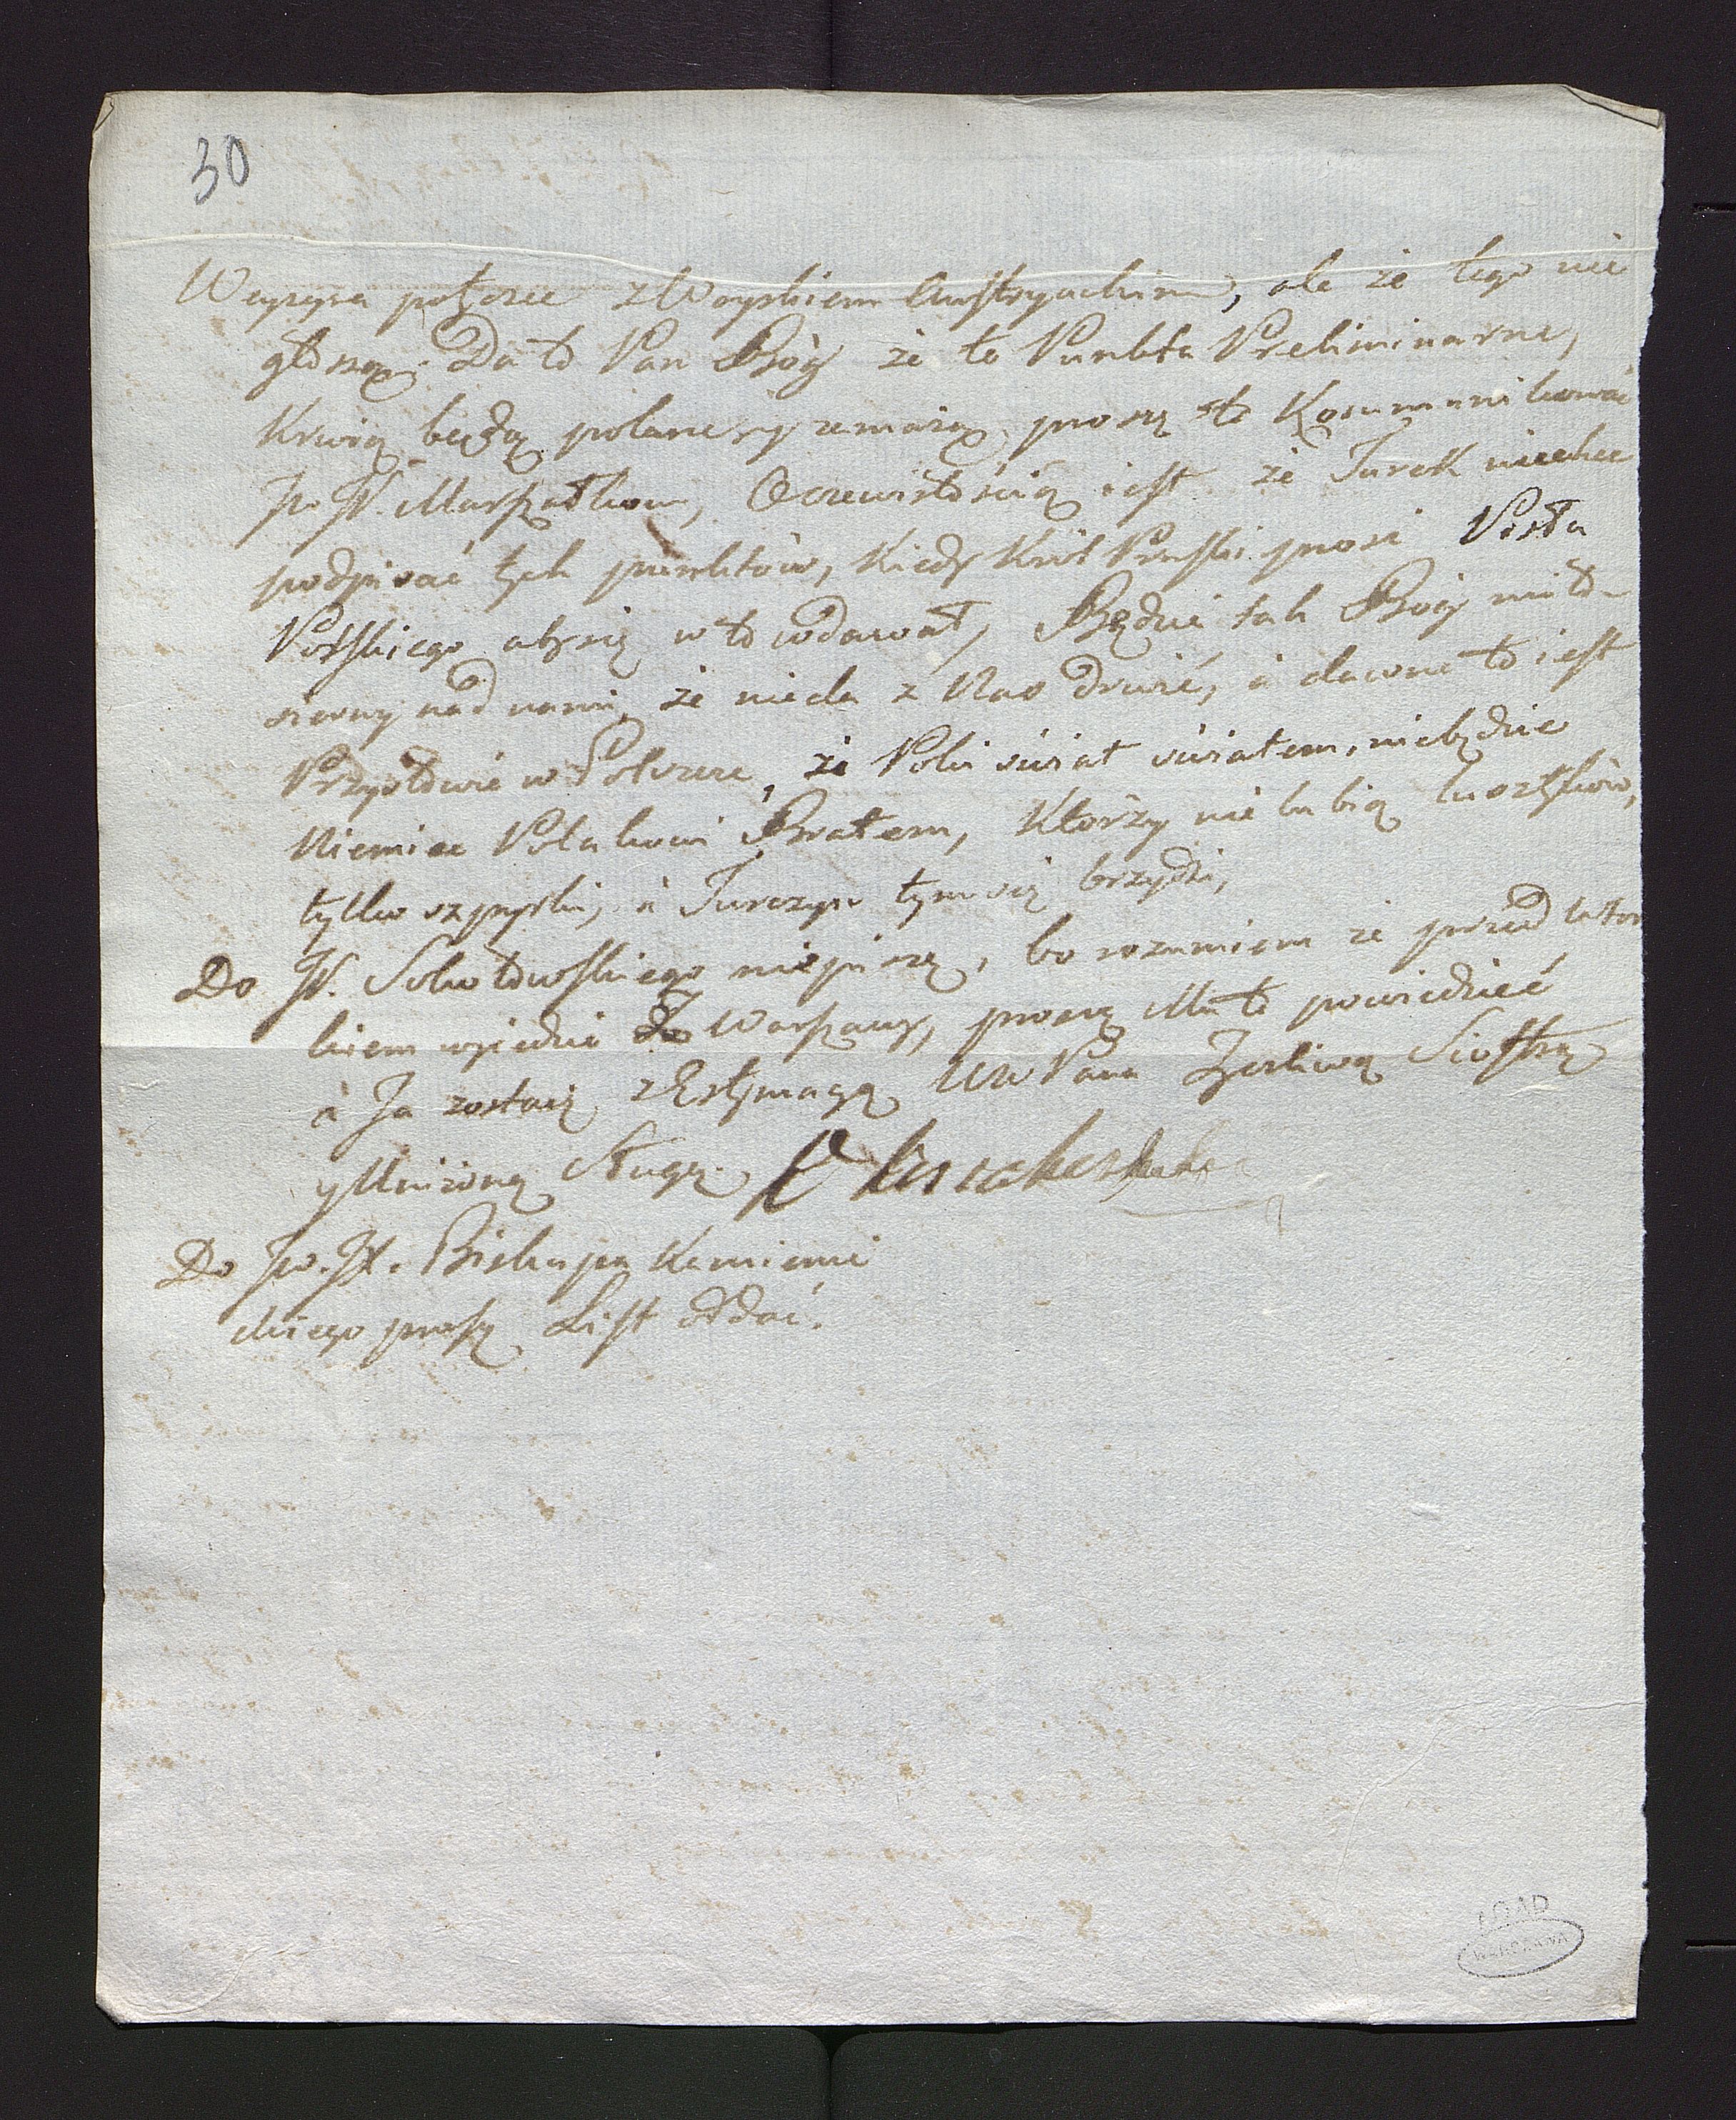 30
Wezyra połzcee z Woyskiem Austryackim, ale że tego nie
głoszą. Da to Pan Bóg że te Punkta Preliminarne,
Krwią będą polane y zmażą, proszę to Kommunikować
JW. Marszałkowi, Oczewistością iest że Turek niechce
podpisać tych punktów, Kiedy Król Pruski prosi Posła
Polskiego aby się w to wdawał, Będzie tak Bóg miło-
sierny nad nami, że nieda z Nas drwić, à dawne to iest
Przysłowie w Polszcze, że Póki świat światem, niebędzie
Niemiec Polakowi Bratem, Którzy nie lubią kosztków,
tylko szpyrki, à Turczyn tym się brzydzi,
Do JP. Sokołowskiego niepiszę, bo rozumiem że przed
kiem wyiedzie do Warszawy, proszę Mu to powiedzieć
à Ja zostaię z Estymacyą WW Pana Życzliwą Siostrą
y Uniżoną Sługą.
Do Jw. JX. Biskupa Kamienie
ckiego proszę List oddać.
AGAD
WARSZAWA